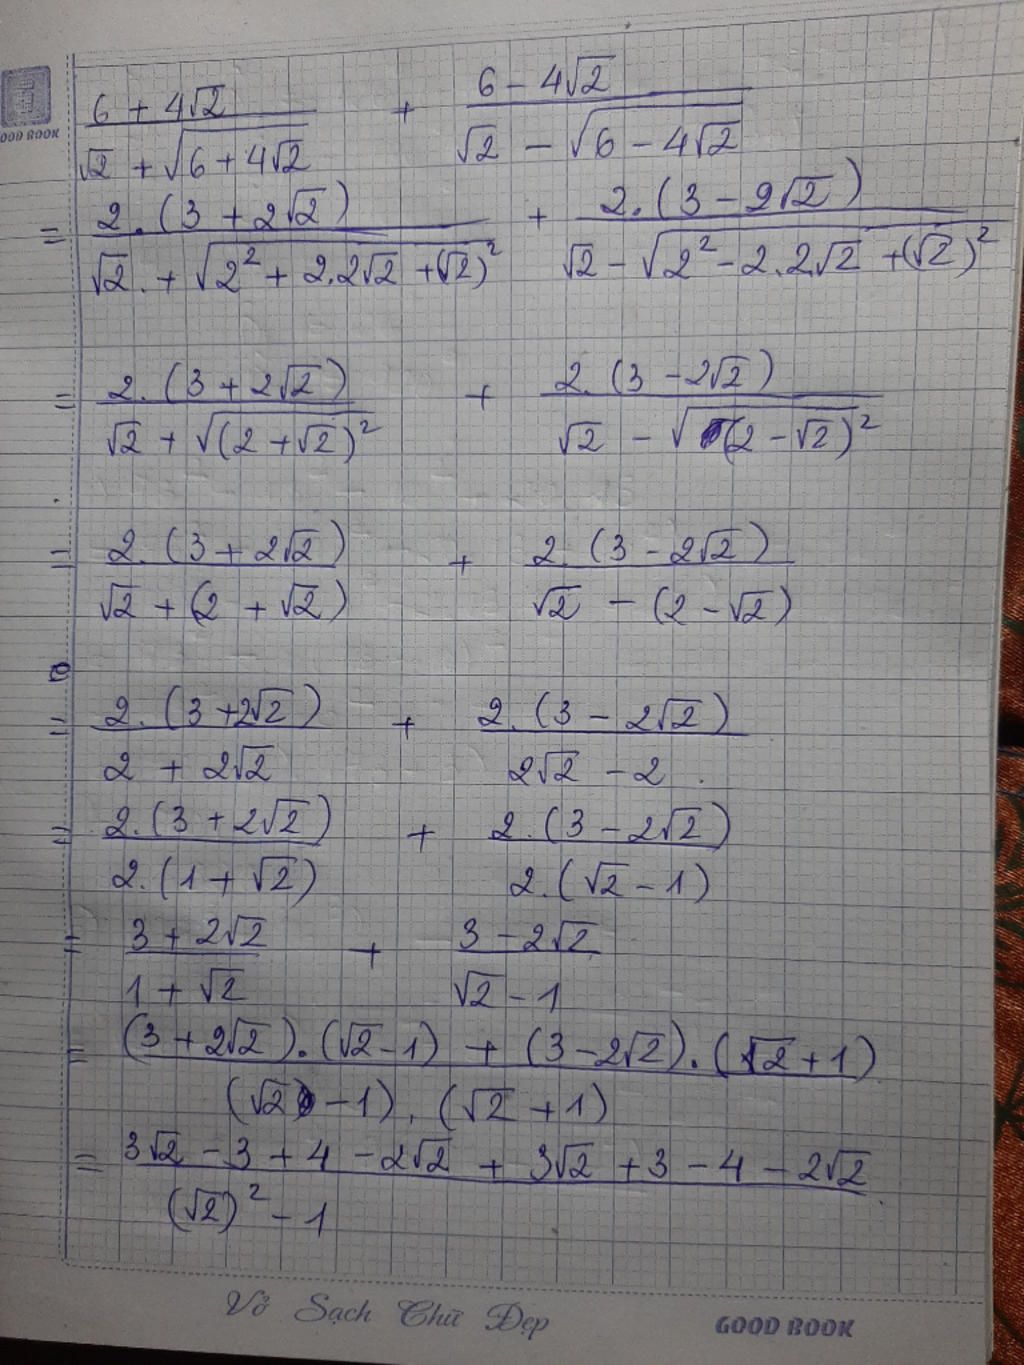 OOD BOOK
6 + 4√2 / √2 + √(6 + 4√2) + 6 - 4√2 / √2 - √(6 - 4√2)
= 2.(3 + 2√2) / √2 + √(2² + 2.2√2 + (√2)²) + 2.(3 - 2√2) / √2 - √(2² - 2.2√2 + (√2)²)
= 2.(3 + 2√2) / √2 + √(2 + √2)² + 2.(3 - 2√2) / √2 - √(2 - √2)²
= 2.(3 + 2√2) / √2 + (2 + √2) + 2.(3 - 2√2) / √2 - (2 - √2)
= 2.(3 + 2√2) / 2 + 2√2 + 2.(3 - 2√2) / 2√2 - 2
= 2.(3 + 2√2) / 2.(1 + √2) + 2.(3 - 2√2) / 2.(√2 - 1)
= 3 + 2√2 / 1 + √2 + 3 - 2√2 / √2 - 1
= (3 + 2√2).(√2 - 1) + (3 - 2√2).(√2 + 1) / (√2 - 1).(√2 + 1)
= 3√2 - 3 + 4 - 2√2 + 3√2 + 3 - 4 - 2√2 / (√2)² - 1
Vở Sạch Chữ Đẹp
GOOD BOOK